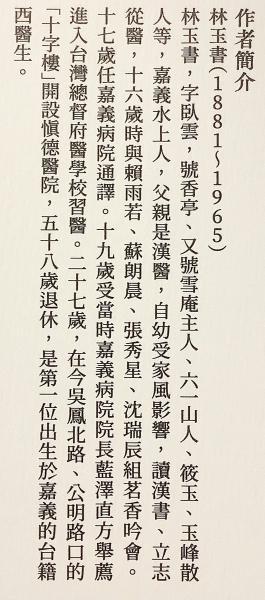 作者簡介
林玉書(1881~1965)
林玉書，字臥雲，號香亭、又號雪庵主人、六一山人、筱玉、玉峰散
人等，嘉義水上人，父親是漢醫，自幼受家風影響，讀漢書、立志
從醫，十六歲時與賴雨若、蘇朗晨、張秀星、沈瑞辰組茗香吟會。
十七歲任嘉義病院通譯。十九歲受當時嘉義病院院長藍澤直方舉薦
進入台灣總督府醫學校習醫。二十七歲，在今吳鳳北路、公明路口的
「十字樓」開設愼德醫院，五十八歲退休，是第一位出生於嘉義的台籍
西醫生。